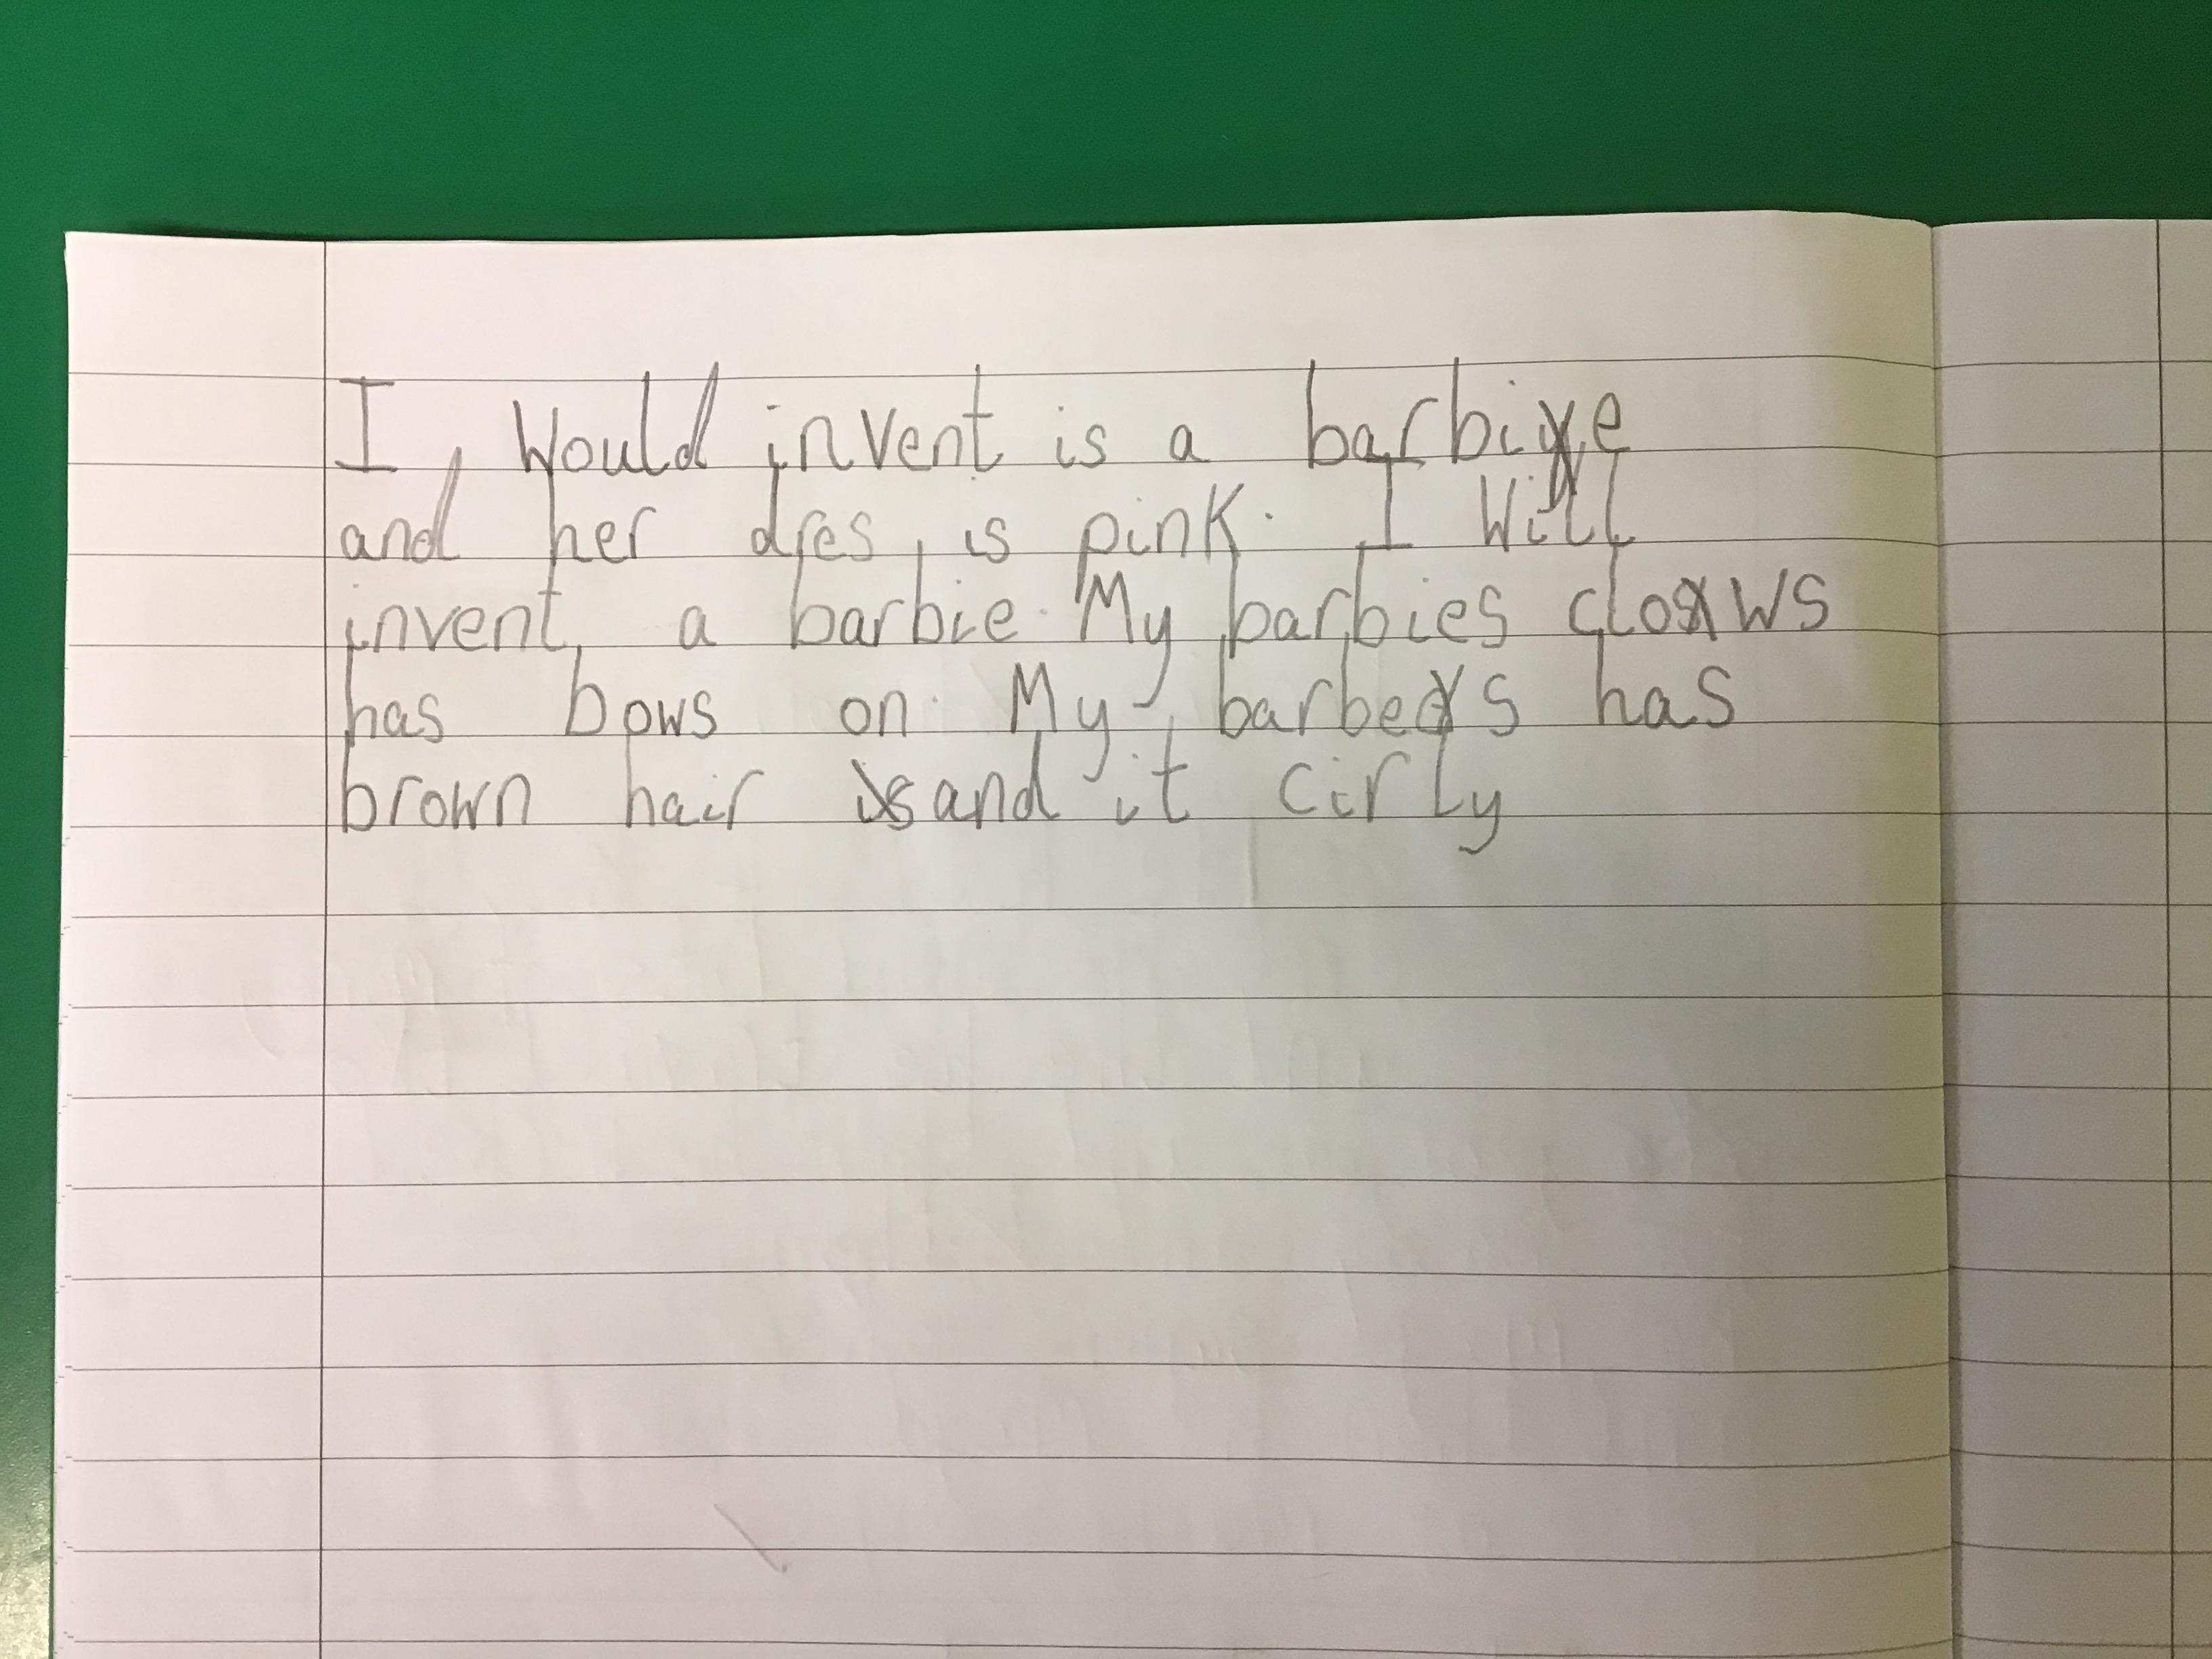 I Would invent is a barbie
and her dres is pink. I Will
invent a barbie. My barbies clows
has bows on. My barbes has
brown hair and it cirly